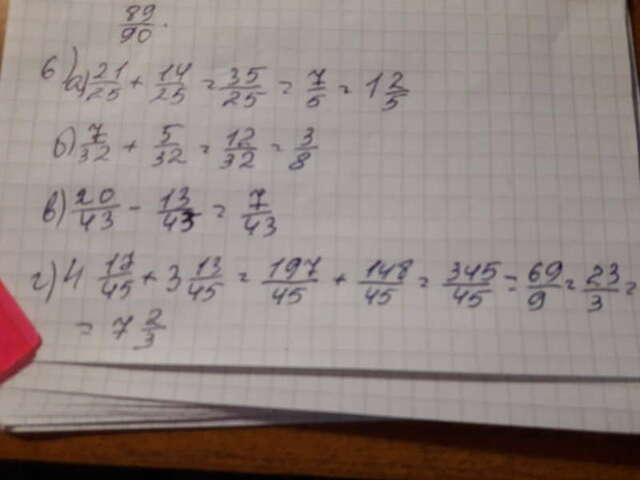 89/90.
6) а) 21/25 + 14/25 = 35/25 = 7/5 = 1 2/5
б) 7/32 + 5/32 = 12/32 = 3/8
в) 20/43 - 13/43 = 7/43
г) 4 17/45 + 3 13/45 = 197/45 + 148/45 = 345/45 = 69/9 = 23/3 =
= 7 2/3